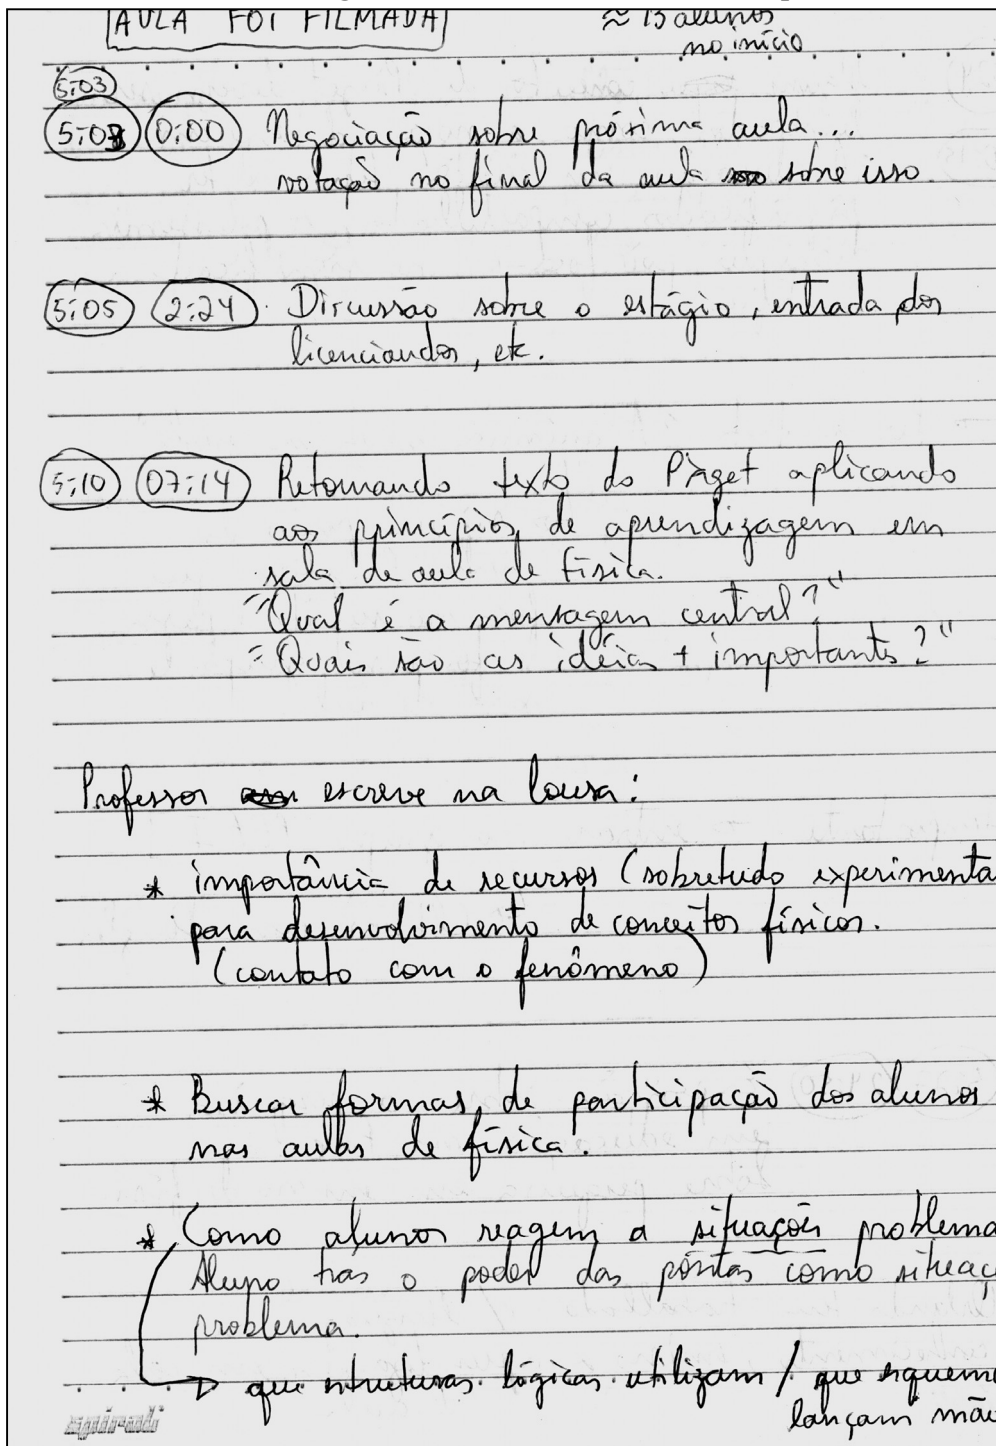 AULA FOI FILMADA
≈ 13 alunos
no início
5:03
5:03 0:00 Negociação sobre próxima aula...
votação no final da aula sobre isso.
5:05 2:24 Discussão sobre o estágio, entrada dos
licenciandos, etc.
5:10 07:14 Retomando texto do Piaget aplicando
aos princípios de aprendizagem em
sala de aula de física.
"Qual é a mensagem central?"
"Quais são as idéias + importantes?"
Professor escreve na lousa:
* importância de recursos (sobretudo experimenta
para desenvolvimento de conceitos físicos.
(contato com o fenômeno)
* Buscar formas de participação dos alunos
nas aulas de física.
* Como alunos reagem a situações problema
Aluno tras o poder das pontas como situaç
problema.
→ que estruturas lógicas utilizam / que esquema
lançam mão